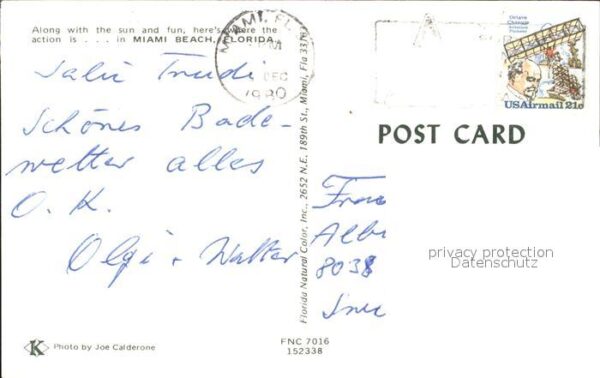 Along with the sun and fun, here's where the
action is . . . in MIAMI BEACH, FLORIDA.
MIAMI, FL
PM
DEC
1980
Octave Chanute
Aviation
Pioneer
USAirmail 21c
Salü Trudi
Schönes Bade-
wetter alles
O.K.
Olgi + Walter
POST CARD
Florida Natural Color, Inc., 2652 N.E. 189th St., Miami, Fla 33163
Frau
8038
privacy protection
Datenschutz
K
Photo by Joe Calderone
FNC 7016
152338